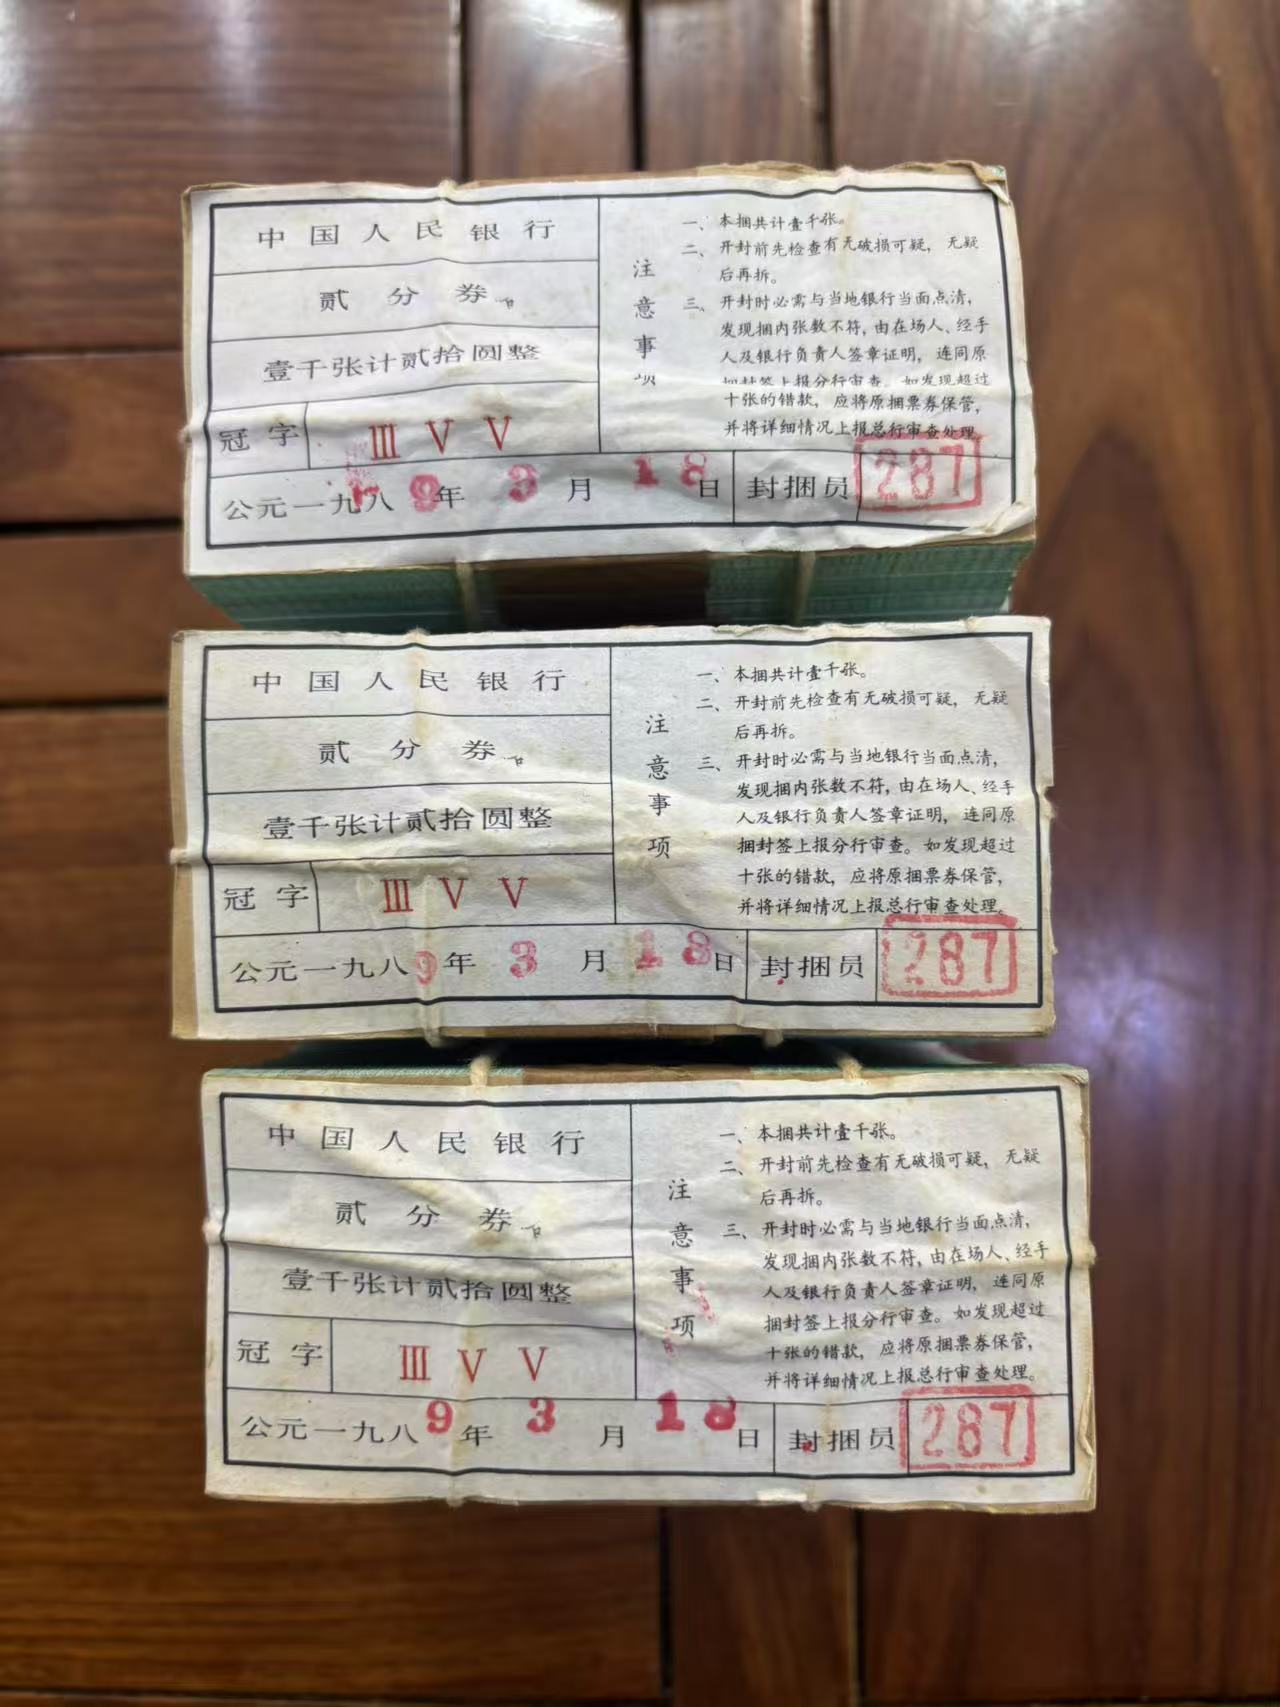 中国人民银行
贰分券
壹千张计贰拾圆整
冠字 Ⅲ V V
公元一九八9年3月18日 封捆员 287
注意事项
一、本捆共计壹千张。
二、开封前先检查有无破损可疑，无疑
后再拆。
三、开封时必需与当地银行当面点清，
发现捆内张数不符，由在场人、经手
人及银行负责人签章证明，连同原
捆封签上报分行审查。如发现超过
十张的错款，应将原捆票券保管，
并将详细情况上报总行审查处理
中国人民银行
贰分券
壹千张计贰拾圆整
冠字 Ⅲ V V
公元一九八9年3月18日 封捆员 287
注意事项
一、本捆共计壹千张。
二、开封前先检查有无破损可疑，无疑
后再拆。
三、开封时必需与当地银行当面点清，
发现捆内张数不符，由在场人、经手
人及银行负责人签章证明，连同原
捆封签上报分行审查。如发现超过
十张的错款，应将原捆票券保管，
并将详细情况上报总行审查处理。
中国人民银行
贰分券
壹千张计贰拾圆整
冠字 Ⅲ V V
公元一九八9年3月18日 封捆员 287
注意事项
一、本捆共计壹千张。
二、开封前先检查有无破损可疑，无疑
后再拆。
三、开封时必需与当地银行当面点清，
发现捆内张数不符，由在场人、经手
人及银行负责人签章证明，连同原
捆封签上报分行审查。如发现超过
十张的错款，应将原捆票券保管，
并将详细情况上报总行审查处理。